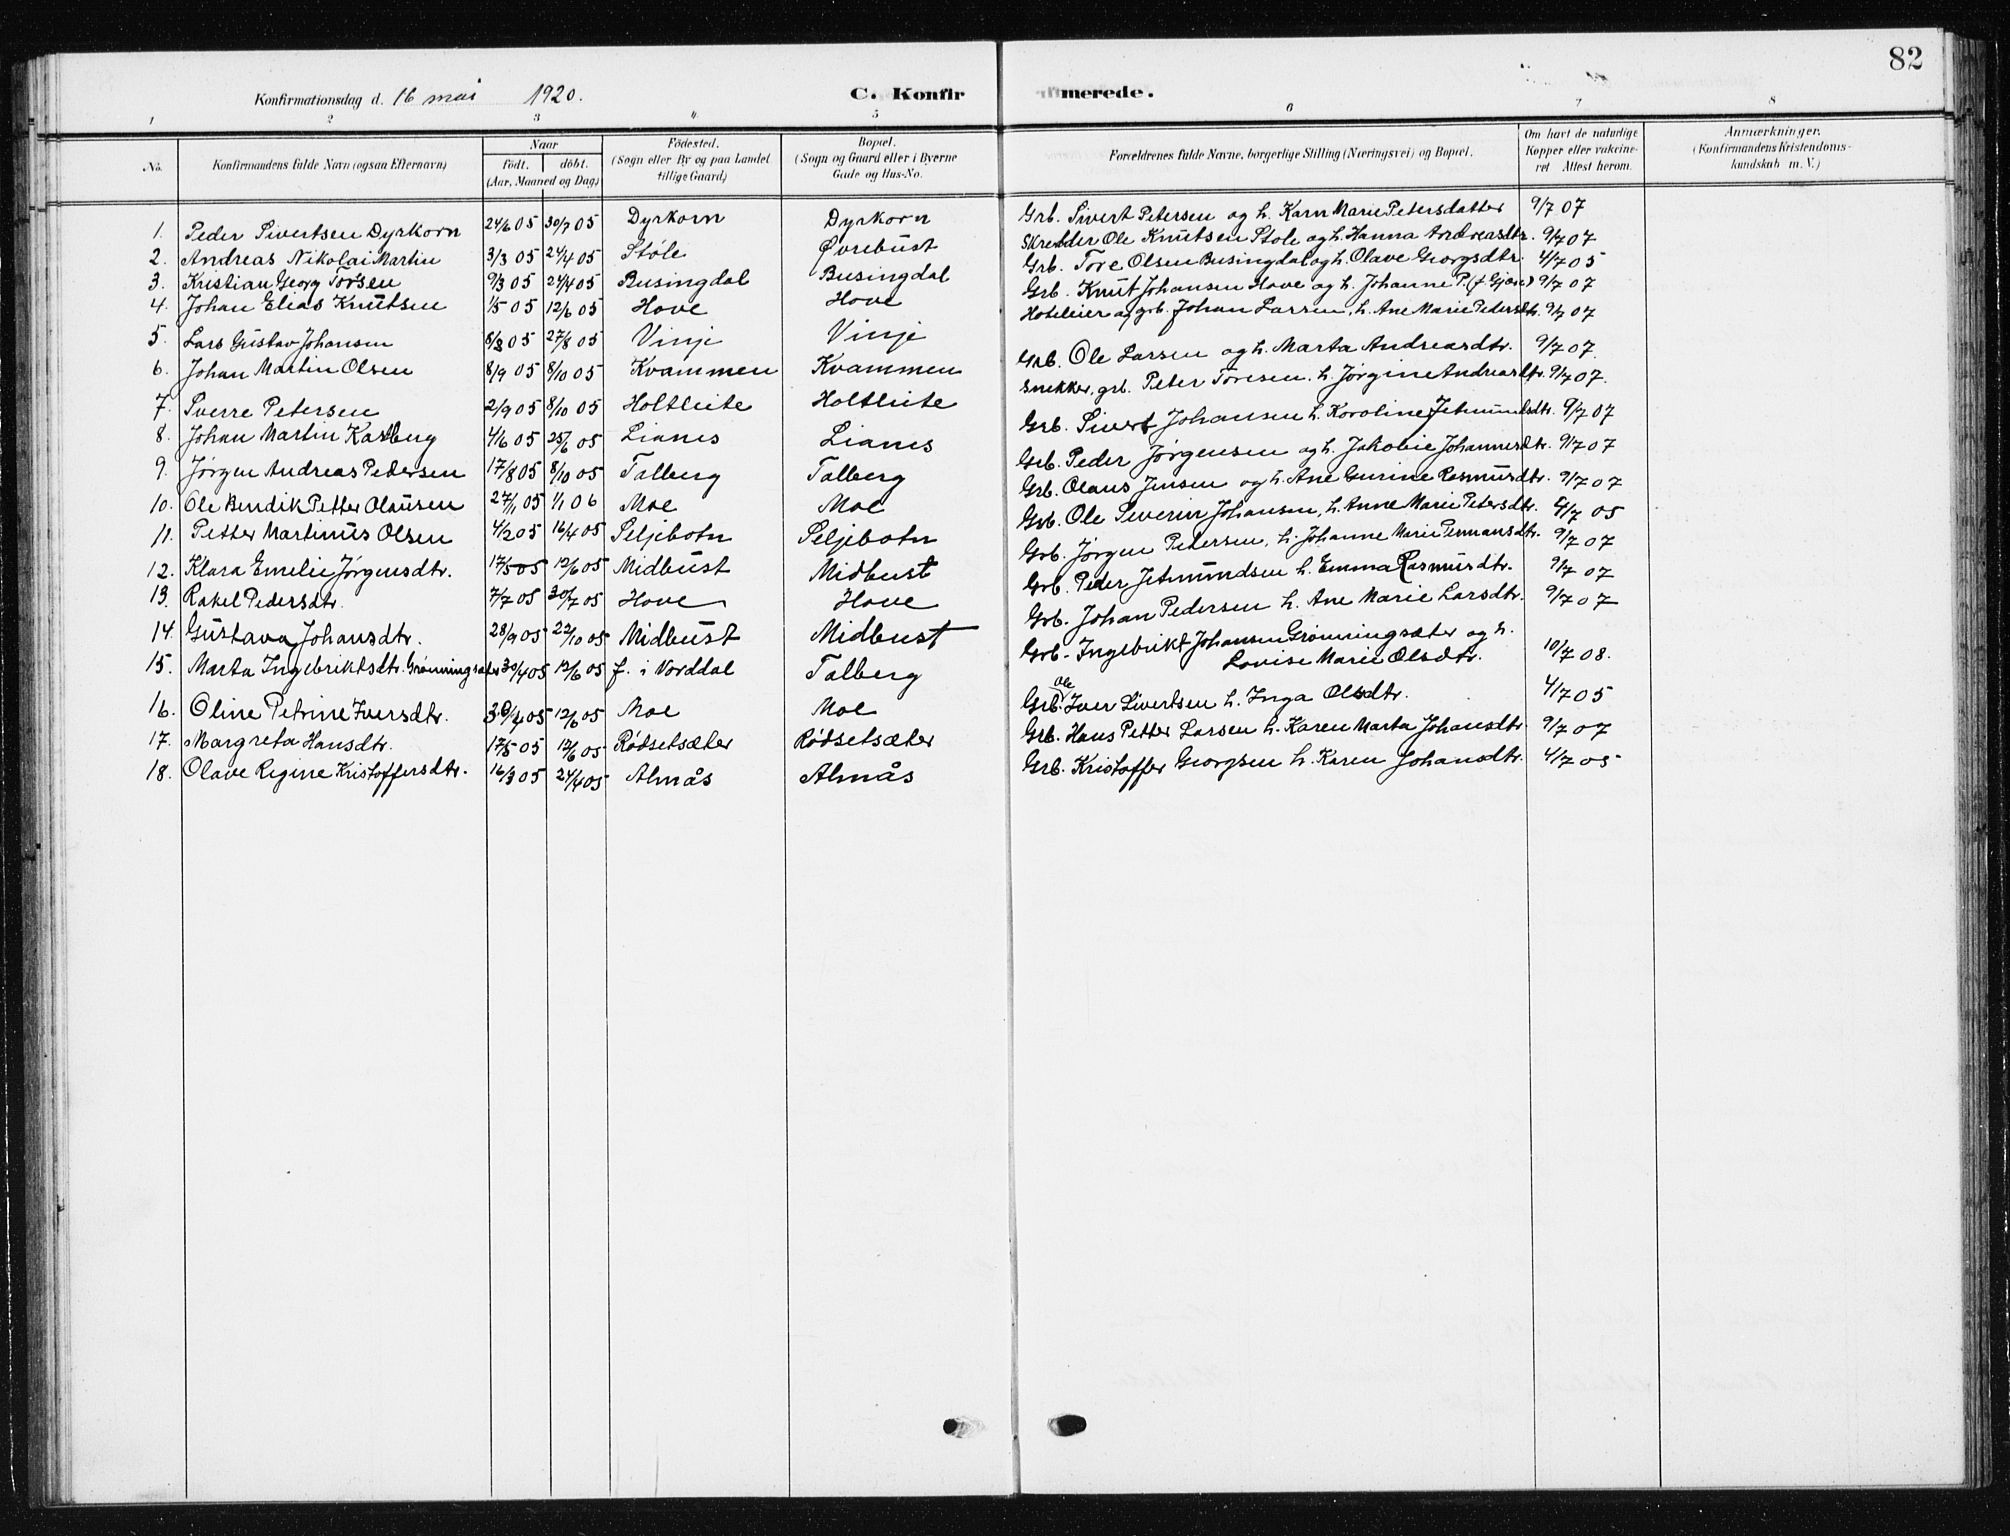 82
Konfirmationsdag d. 16 mai 1920. C. Konfirmerede.
1 2 3 4 5 6 7 8
No. Konfirmandens fulde Navn (ogsaa Efternavn) Naar født. døbt. (Aar, Maaned og Dag) Fødested. (Sogn eller By og paa Landet tillige Gaard) Bopæl. (Sogn og Gaard eller i Byerne Gade og Hus-No. Forældrenes fulde Navne, borgerlige Stilling (Næringsvei) og Bopæl. Om havt de naturlige Kopper eller vakcineret Attest herom. Anmærkninger. (Konfirmandens Kristendomskundskab m. V.)
1. Peder Sivertsen Dyrkorn 24/6 05 30/7 05 Dyrkorn Dyrkorn Grb. Sivert Petersen og h. Karn Marie Petersdatter 9/7 07
2. Andreas Nikolai Martin 3/3 05 24/4 05 Støle Øvrebust Skredder Ole Knutsen Støle og h. Hanna Andreasdtr. 9/7 07
3. Kristian Georg Toresen 9/3 05 24/4 05 Busingdal Busingdal Grb. Tore Olsen Busingdal og h. Olave Georgsdtr. 4/7 05
4. Johan Elias Knutsen 1/5 05 12/6 05 Hove Hove Grb. Knut Johansen Hove og h. Johanne P. 9/7 07
5. Lars Gustav Johansen 8/8 05 27/8 05 Vinje Vinje Hoteleier og grb. Johan Larsen, h. Ane Marie Pedersdtr. 9/7 07
6. Johan Martin Olsen 8/9 05 8/10 05 Kvammen Kvammen Grb. Ole Larsen og h. Marta Andreasdtr. 9/7 07.
7. Sverre Petersen 2/9 05 8/10 05 Holtleite Holtleite Snekker, grb. Peter Toresen, h. Jørgine Andreasdtr. 9/7 07.
8. Johan Martin 4/6 05 25/6 05 Lianes Lianes Grb. Sivert Johansen h. Karoline Jetmundsdtr. 9/7 07
9. Jørgen Andreas Pedersen 17/8 05 8/10 05 Talberg Talberg Grb. Peder Jørgensen og h. Jakobie Johannesdtr. 9/7 07
10. Ole Bendik Petter Olausen 27/11 05 1/1 06 Moe Moe Grb. Olaus Jensen og h. Ane Gurine Rasmusdtr. 9/7 07
11. Petter Martinus Olsen 4/2 05 16/4 05 Seljebotn Seljebotn Grb. Ole Severin Johansen, h. Anne Marie Petersdtr. 4/7 05
12. Klara Emelie Jørgensdtr. 17/5 05 12/6 05 Midbust Midbust Grb. Jørgen Petersen, h. Johanne Marie 9/7 07
13. Rakel Pedersdtr. 7/7 05 30/7 05 Hove Hove Grb. Peder Jetmundsen h. Emma Rasmusdtr. 9/7 07
14. Gustava Johansdtr. 28/9 05 22/10 05 Midbust Midbust Grb. Johan Pedersen h. Ane Marie Larsdtr. 9/7 07
15. Marta Ingebriktsdtr. Grønningsæter 30/4 05 12/6 05 f. i Norddal Talberg Grb. Ingebrikt Johansen Grønningsæter og h. Lovise Marie Olsdtr. 10/7 08.
16. Oline Petrine Iversdtr. 30/4 05 12/6 05 Moe Moe Grb. Ole Iver Sivertsen h. Inga Olsdtr. 4/7 05
17. Margreta Hansdtr. 17/5 05 12/6 05 Rødsetsæter Rødsetsæter Grb. Hans Petter Larsen h. Karen Marta Johansdtr 9/7 07
18. Olave Regine Kristoffersdtr. 16/3 05 24/4 05 Almås Almås Grb. Kristoffer Georgsen h. Karen Johansdtr. 4/7 05